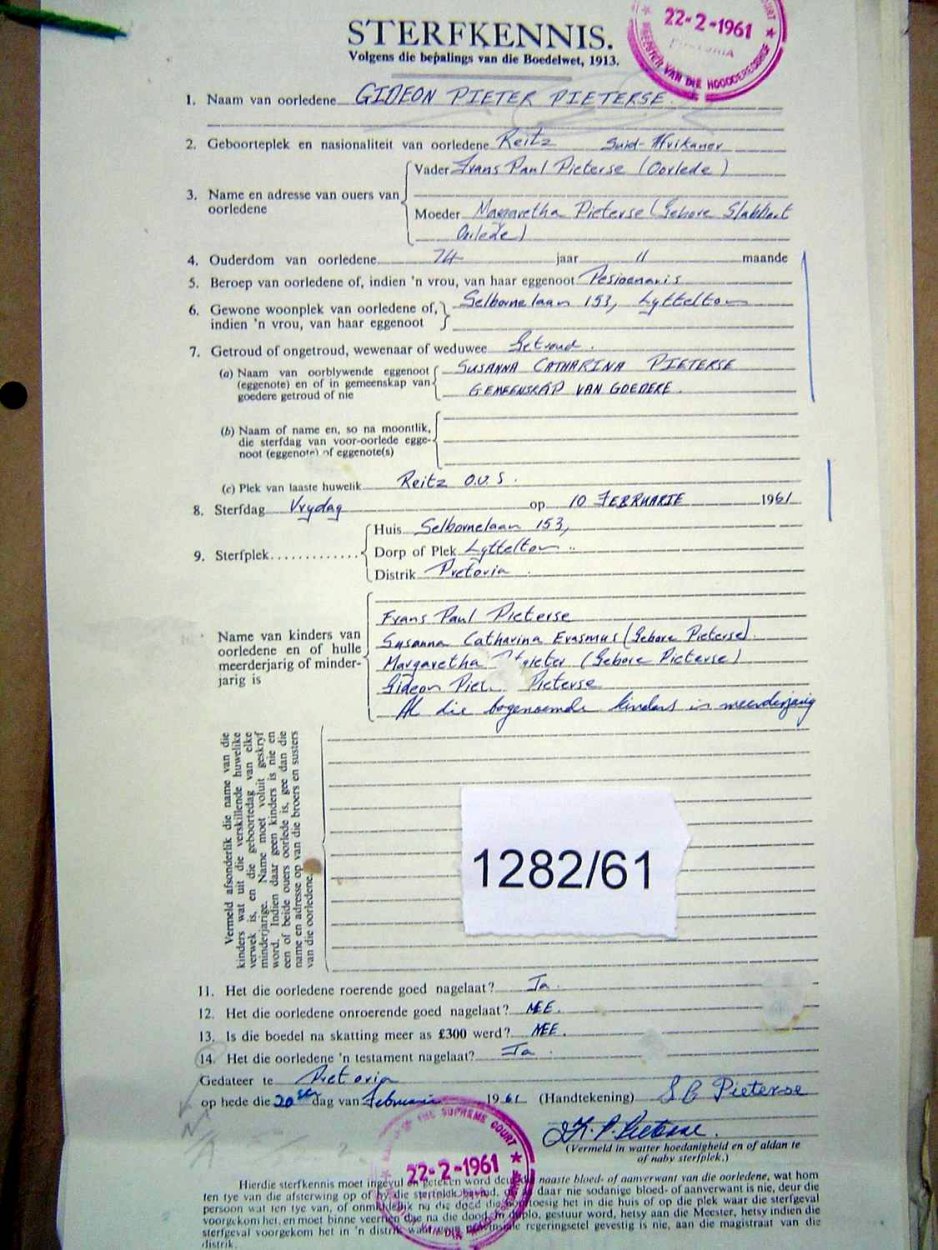 STERFKENNIS.
Volgens die bepalings van die Boedelwet, 1913.
22-2-1961
MEESTER VAN DIE HOOGGEREGSHOF
1. Naam van oorledene GIDEON PIETER PIETERSE
2. Geboorteplek en nasionaliteit van oorledene Reitz Suid-Afrikaner
3. Name en adresse van ouers van oorledene
Vader Frans Paul Pieterse (Oorlede)
Moeder Margaretha Pieterse (Gebore Slabbert
Oorlede)
4. Ouderdom van oorledene 74 jaar 11 maande
5. Beroep van oorledene of, indien 'n vrou, van haar eggenoot Pesioenaris
6. Gewone woonplek van oorledene of, indien 'n vrou, van haar eggenoot Selbornelaan 153, Lyttelton
7. Getroud of ongetroud, wewenaar of weduwee Getroud.
(a) Naam van oorblywende eggenoot (eggenote) en of in gemeenskap van goedere getroud of nie
SUSANNA CATHARINA PIETERSE
GEMEENSKAP VAN GOEDERE.
(b) Naam of name en, so na moontlik, die sterfdag van voor-oorlede eggenoot (eggenote) of eggenote(s)
(c) Plek van laaste huwelik Reitz O.V.S.
8. Sterfdag Vrydag op 10 FEBRUARIE 1961
9. Sterfplek
Huis Selbornelaan 153,
Dorp of Plek Lyttelton
Distrik Pretoria
Name van kinders van oorledene en of hulle meerderjarig of minderjarig is
Frans Paul Pieterse
Susanna Catharina Erasmus (Gebore Pieterse).
Margaretha (Gebore Pieterse)
Gideon Pieterse
Al die bogenoemde kinders is meerderjarig
Vermeld afsonderlik die name van die
kinders wat uit die verskillende huwelike
verwek is, en die geboortedag van elke
minderjarige. Name moet voluit geskryf
word. Indien daar geen kinders is nie en
een of beide ouers oorlede is, gee dan die
name en adresse op van die broers en susters
van die oorledene.
1282/61
11. Het die oorledene roerende goed nagelaat? Ja.
12. Het die oorledene onroerende goed nagelaat? NEE.
13. Is die boedel na skatting meer as £300 werd? NEE.
14. Het die oorledene 'n testament nagelaat? Ja.
Gedateer te Pretoria
op hede die 20ste dag van Februarie 1961 (Handtekening) S C Pieterse
(Vermeld in watter hoedanigheid en of aldan te
of naby sterfplek.)
SUPREME COURT
22-2-1961
Hierdie sterfkennis moet ingevul geteken word deur naaste bloed- of aanverwant van die oorledene, wat hom
ten tye van die afsterwing op of by die sterfplek daar nie sodanige bloed- of aanverwant is nie, deur die
persoon wat ten tye van, of onmiddellik na die dood die toesig het in die huis of op die plek waar die sterfgeval
voorgekom het, en moet binne veertien dae na die dood, in duplo, gestuur word, hetsy aan die Meester, hetsy indien die
sterfgeval voorgekom het in 'n distrik regeringsetel gevestig is nie, aan die magistraat van die
distrik.